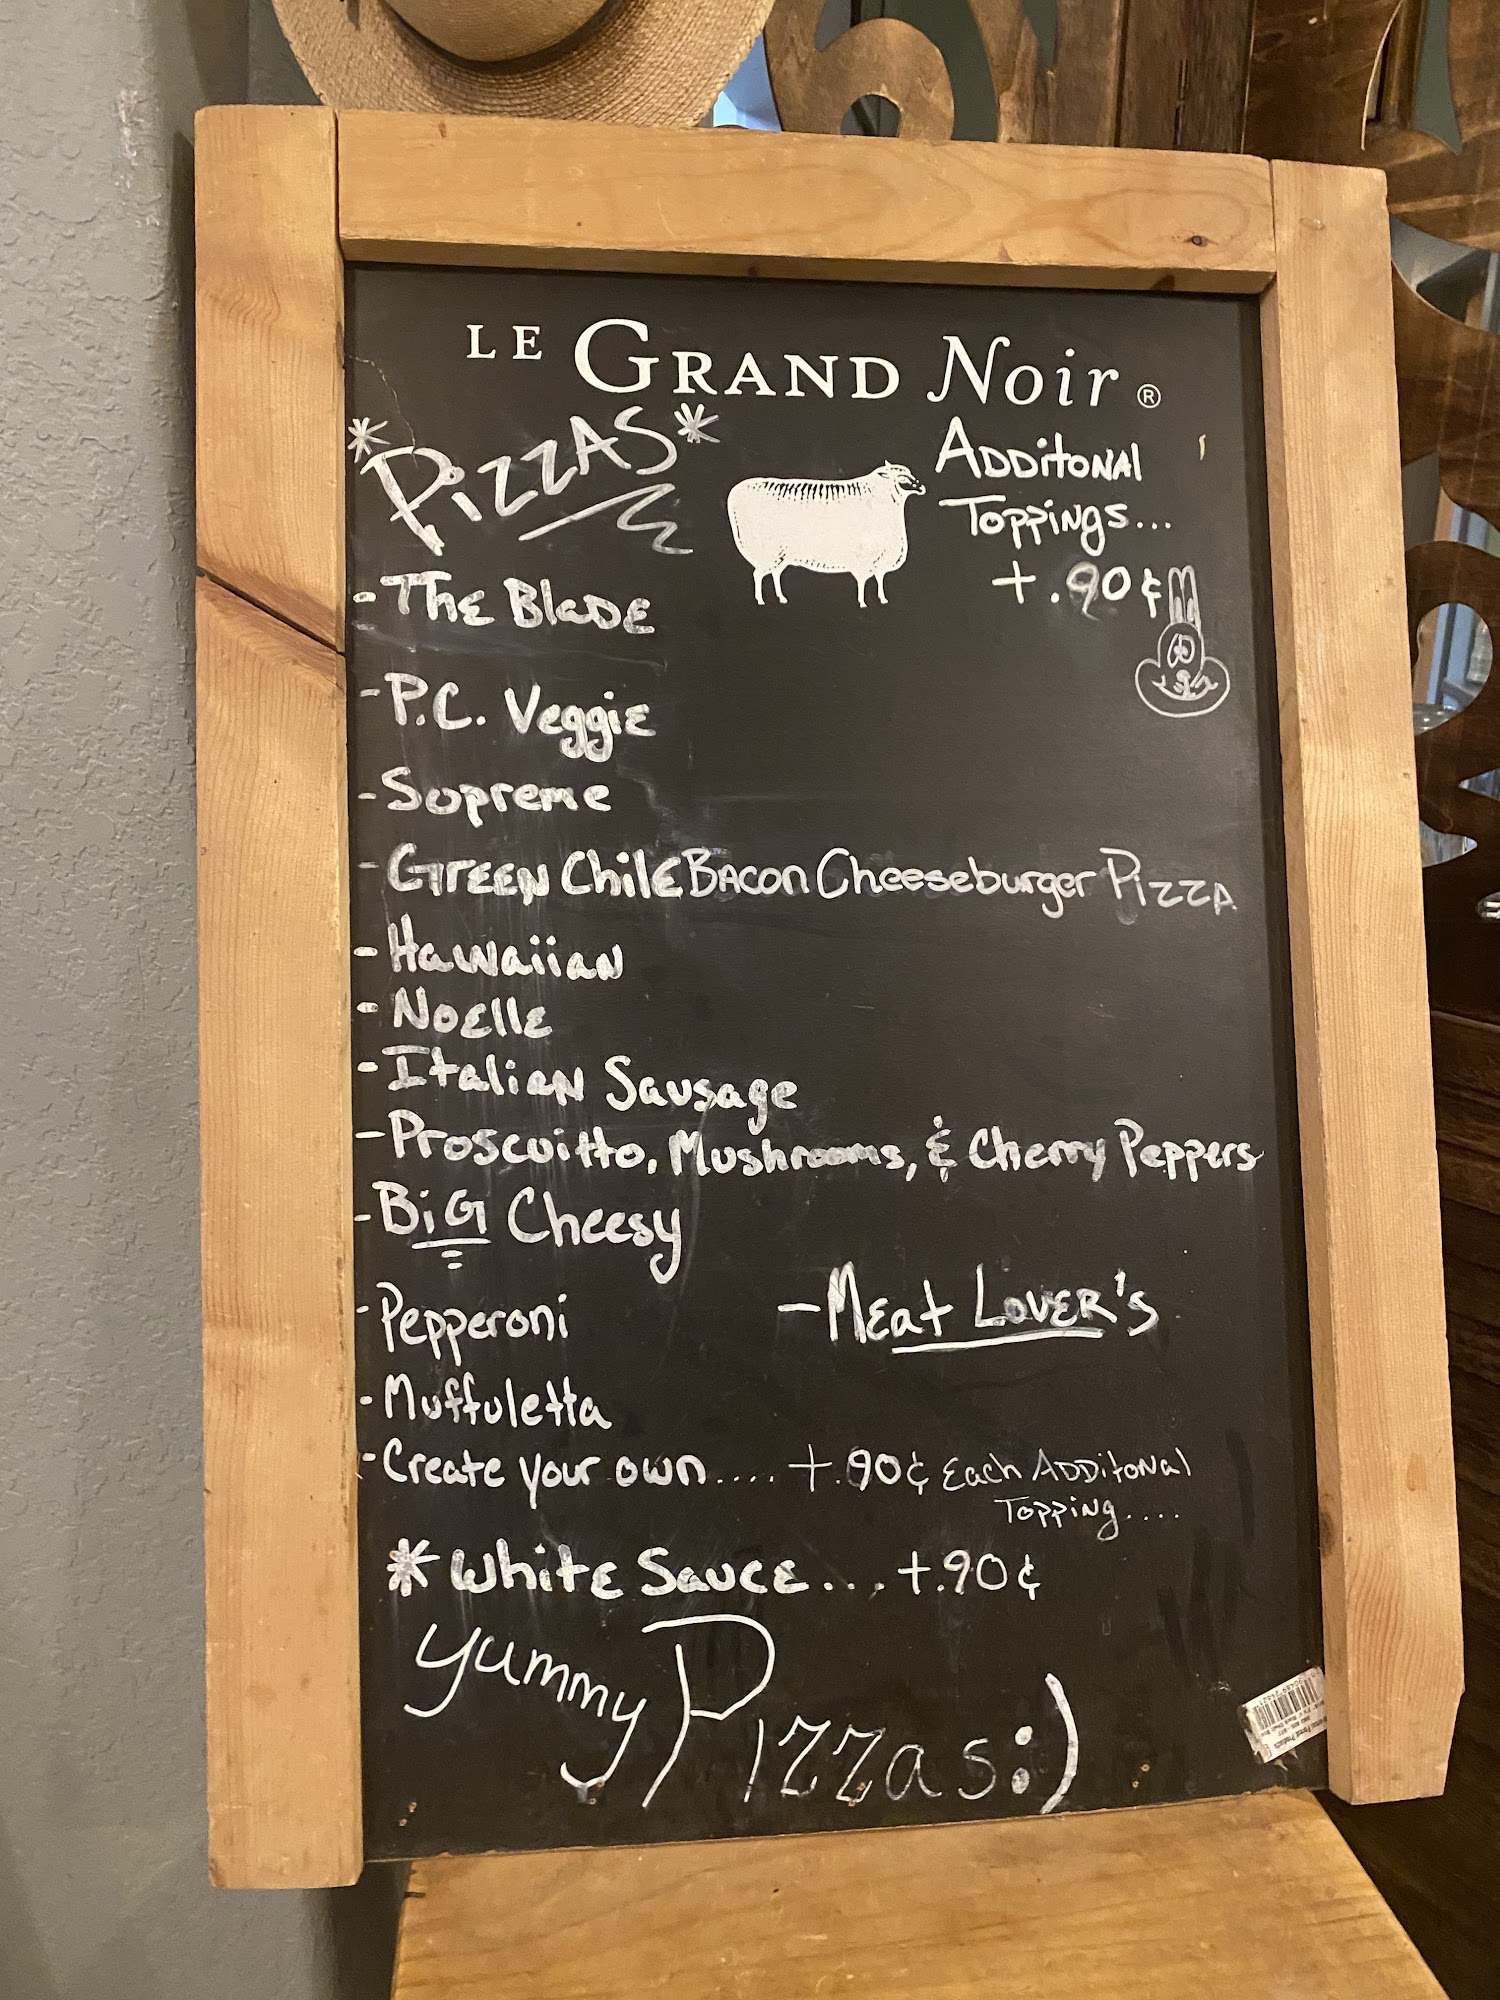 LE GRAND Noir ®
*PIZZAS*
ADDitONAl
TOPPiNgs...
+.90¢
-THE BlaDE
-P.C. Veggie
-Sopreme
-GREEN ChilE BACON Cheeseburger PIZZA
-Hawaiian
-Noelle
-Italian Sausage
-Proscuitto, Mushrooms, & Cherry Peppers
-BiG Cheesy
-Pepperoni
-MEat LOVER's
-Muffuletta
-Create your own.... +.90¢ Each ADDitONal
TOPPiNg....
*WhitE SaucE... +.90¢
yummy Pizzas:)